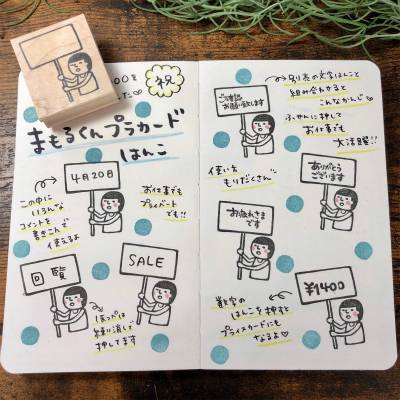 00を
した♡
祝
まもるくんプラカード
はんこ
4月20日
この中に
いろんな
コメントを
書きこんで
使えるよ
お仕事でも
プライベート
でも!!
回覧
SALE
ほっぺは
練り消しで
押してます
ご確認
お願い致します
別売の文字はんこと
組み合わせると
こんなかんじ♡
ふせんに押して
お仕事でも
大活躍!!
使い方
もりだくさん
ありがとう
ございます
お疲れさま
です
数字の
はんこを押すと
プライスカードにも
なるよ♡
¥1400